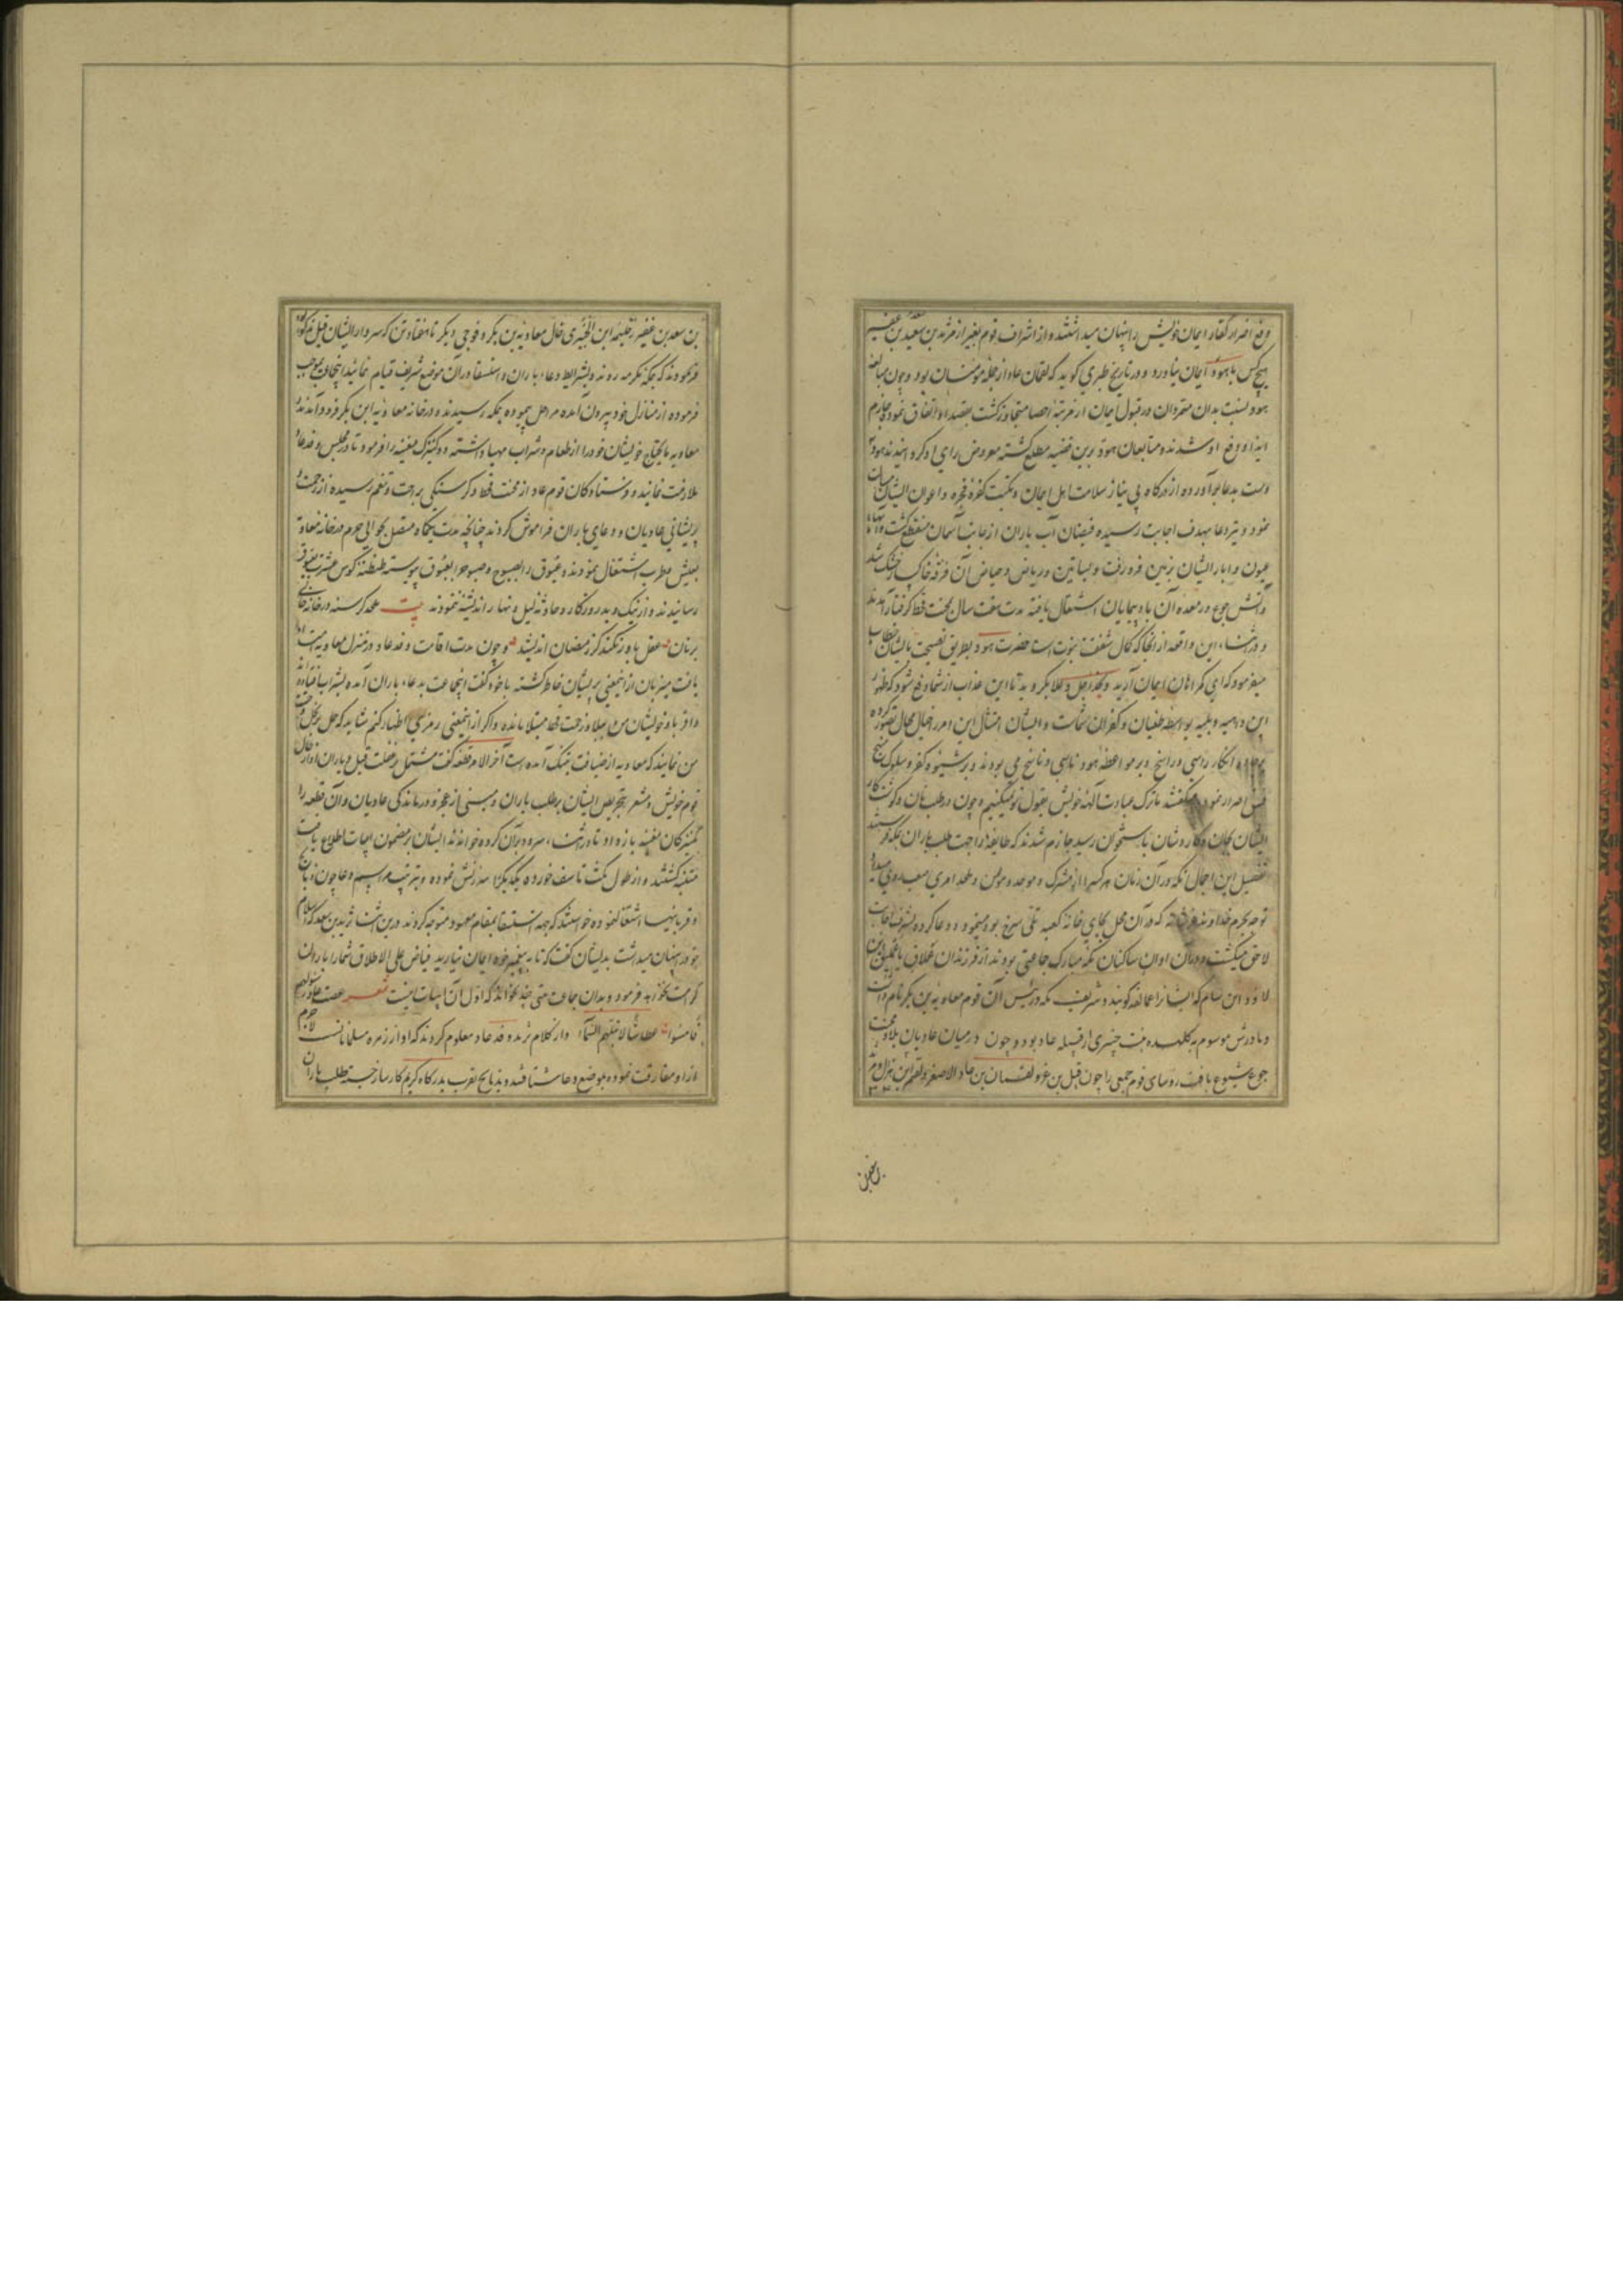 دفع اضرار کفار ایمان خویش را پنهان میداشتند و از اشراف قوم بغیر از مرثد بن سعد بن عفیر
هیچ کس بهود ایمان نیاورد و در تاریخ طبری کوید که لقمان عاد از جمله مؤمنان بود و چون مبالغه
هود نسبت بدان متمردان در قبول ایمان از مرتبه احصا متجاوز کشت بقصد او اتفاق نموده جازم
ایذا و دفع او شدند و متابعان هود برین قضیه مطلع کشته معروض رای او کردانیدند هود
دست بدعا برآورده از درکاه بی نیاز سلامت اهل ایمان و نکبت کفره فجره و اعوان ایشان مسالت
نمود و تیر دعا بهدف اجابت رسیده فیضان آب باران از جانب آسمان منقطع کشت و آبهاء
عیون و ابار ایشان بزمین فرو رفت و بساتین و ریاض و حیاض آن فرقه خاکسار خشک شد
و آتش جوع در معده آن بادپیمایان اشتعال یافته مدت هفت سال بمحنت قحط کرفتار آمدند
و در اثناء این واقعه از آنجا که کمال شفقت نبوت است حضرت هود بطریق نصیحت بایشان خطاب
میفرمود که ای کمراهان ایمان آرید و بخدا عز و علا بکروید تا این عذاب از شما دفع شود که ظهور
این داهیه و بلیه بواسطه طغیان و کفران شماست و ایشان امتثال این امر در خیال محال تصور کرده
انکار راسی و راسخ و بر مواعظ هود ناسی و ناسخ می بودند و بر شیوه کفر و سلوک نهج
فسق اصرار نموده میکفتند ما ترک عبادت آلهه خویش بقول تو نمیکنیم و چون در طلب نان و کوشت کار
ایشان بجان و کاردشان باستخوان رسید جازم شدند که طایفه را جهت طلب باران بمکه فرستند
تفصیل این اجمال آنکه در آن زمان هر کس را از مشرک و موحد و مؤمن و ملحد امری صعب روی میداد
توجه بحرم خداوند عزشانه که در آن محل بجای خانه کعبه تلی سرخ بود مینمود و دعا کرده بشرف اجابت
لاحق میکشت و در آن اوان ساکنان مکه مبارک جماعتی بودند از فرزندان عملاق یا عملیق ابن
لاوذ ابن سام که ایشانرا عمالقه کویند و شریف مکه و رئیس آن قوم معاویه بن بکر نام داشت
و مادرش موسوم به کلهده بنت خیبری از قبیله عاد بود و چون در میان عادیان بلا و محنت
جوع شیوع یافت روسای قوم جمعی را چون قیل بن عنز و لقمان بن عاد الاصغر و لقیم ابن هزال و مرثد
بن سعد بن عفیر و جلیمة ابن الخیبری خال معاویة بن بکر و فوجی دیکر تا هفتاد تن که سردار ایشان قیل مذکور بود
فرمودند که بمکه مکرمه روند و بشرایط دعاء باران و استسقا در آن موضع شریف قیام نمایند اینجماعت بموجب
فرموده از منازل خود بیرون آمده مراحل پیموده بمکه رسیدند و در خانه معاویه ابن بکر فرود آمدند
معاویه مایحتاج خویشان خود را از طعام و شراب مهیا داشته دو کنیزک مغنیه را فرمود تا در مجلس وفد عاد
ملازمت نمایند و فرستادکان قوم عاد از محنت قحط و کرسنکی براحت و تنعم رسیده از زحمت و
پریشانی عادیان و دعای باران فراموش کردند چنانچه مدت یکماه متصل بحوالی حرم در خانه معاویه
بعیش و طرب اشتغال نمودند و غبوق را بصبوح و صبوح را بغبوق پیوسته طنطنه کوس عشرت بعیوق
رسانیدند و از نیک و بد روزکار و حادثه لیل و نهار اندیشه ننمودند بیت ملحد کرسنه در خانه خالی
بر نان عقل باور نکند کز رمضان اندیشد و چون مدت اقامت وفد عاد در منزل معاویه امتداد
یافت میزبان از اینمعنی پریشان خاطر کشته با خود کفت اینجماعت بدعاء باران آمده بشراب افتاده‌اند
و اقربا و خویشان من ببلا و زحمت قحط مبتلا مانده و اکر از اینمعنی رمزی اظهار کنم شاید که حمل بر بخل و خست
من نمایند که معاویه از ضیافت بتنک آمده است آخر الامر قطعه کفت مشتمل بر غفلت قیل و یاران او از حال
قوم خویش و مشعر بتحریض ایشان بر طلب باران و مبنی از عجز و درماندکی عادیان و آن قطعه را
کنیزکان مغنیه یاد داد تا در اثناء سرود بر آن کروه خواندند ایشان بر مضمون ابیات اطلاع یافته
متنبه کشتند و از طول مکث تاسف خورده یکدیکر را سرزنش نموده و بترتیب مراسم دعا چون ذبایح
و قربانیها اشتغال نموده خواستند که جهة استسقا بمقام معهود متوجه کردند درین اثنا مرثد بن سعد که اسلام
خود پنهان میداشت بدیشان کفت که تا به پیغمبر خود ایمان نیارید فیاض علی الاطلاق شما را باران
کرامت نخواهد فرمود و بدان جماعت بیتی چند بخواند که اول آن ابیات اینست شعر عصت عاد رسولهم
فامسوا عطاشا لا تبلهم السماء و از کلام مرثد وفد عاد معلوم کردند که او از زمره مسلمانانست لاجرم
از او مفارقت نموده بموضع دعا شتافتند و بذبایح تقرب بدرکاه کریم کارساز جسته طلب باران